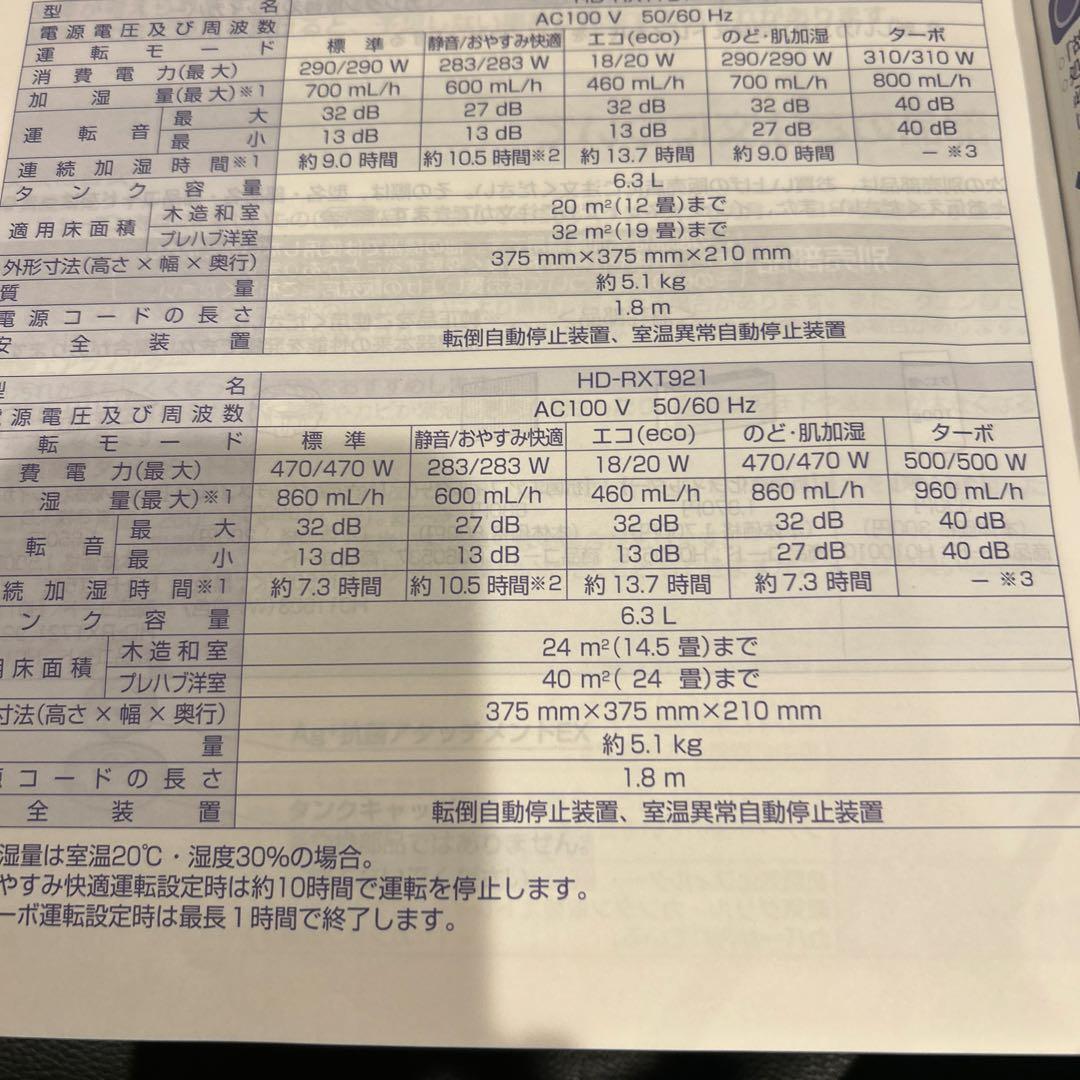 型 名
電源電圧及び周波数 AC100 V 50/60 Hz
運転モード 標準 静音/おやすみ快適 エコ(eco) のど・肌加湿 ターボ
消費電力(最大) 290/290 W 283/283 W 18/20 W 290/290 W 310/310 W
加湿量(最大)※1 700 mL/h 600 mL/h 460 mL/h 700 mL/h 800 mL/h
運転音 最大 32 dB 27 dB 32 dB 32 dB 40 dB
最小 13 dB 13 dB 13 dB 27 dB 40 dB
連続加湿時間※1 約9.0 時間 約10.5時間※2 約13.7 時間 約9.0 時間 − ※3
タンク容量 6.3 L
適用床面積 木造和室 20 m²(12 畳)まで
プレハブ洋室 32 m²(19 畳)まで
外形寸法(高さ×幅×奥行) 375 mm×375 mm×210 mm
質量 約5.1 kg
電源コードの長さ 1.8 m
安全装置 転倒自動停止装置、室温異常自動停止装置
型 名 HD-RXT921
電源電圧及び周波数 AC100 V 50/60 Hz
転モード 標準 静音/おやすみ快適 エコ(eco) のど・肌加湿 ターボ
費電力(最大) 470/470 W 283/283 W 18/20 W 470/470 W 500/500 W
湿量(最大)※1 860 mL/h 600 mL/h 460 mL/h 860 mL/h 960 mL/h
転音 最大 32 dB 27 dB 32 dB 32 dB 40 dB
最小 13 dB 13 dB 13 dB 27 dB 40 dB
続加湿時間※1 約7.3 時間 約10.5時間※2 約13.7時間 約7.3 時間 − ※3
ンク容量 6.3 L
用床面積 木造和室 24 m²(14.5 畳)まで
プレハブ洋室 40 m²( 24 畳)まで
寸法(高さ×幅×奥行) 375 mm×375 mm×210 mm
量 約5.1 kg
源コードの長さ 1.8 m
全装置 転倒自動停止装置、室温異常自動停止装置
湿量は室温20℃・湿度30%の場合。
やすみ快適運転設定時は約10時間で運転を停止します。
ーボ運転設定時は最長1時間で終了します。